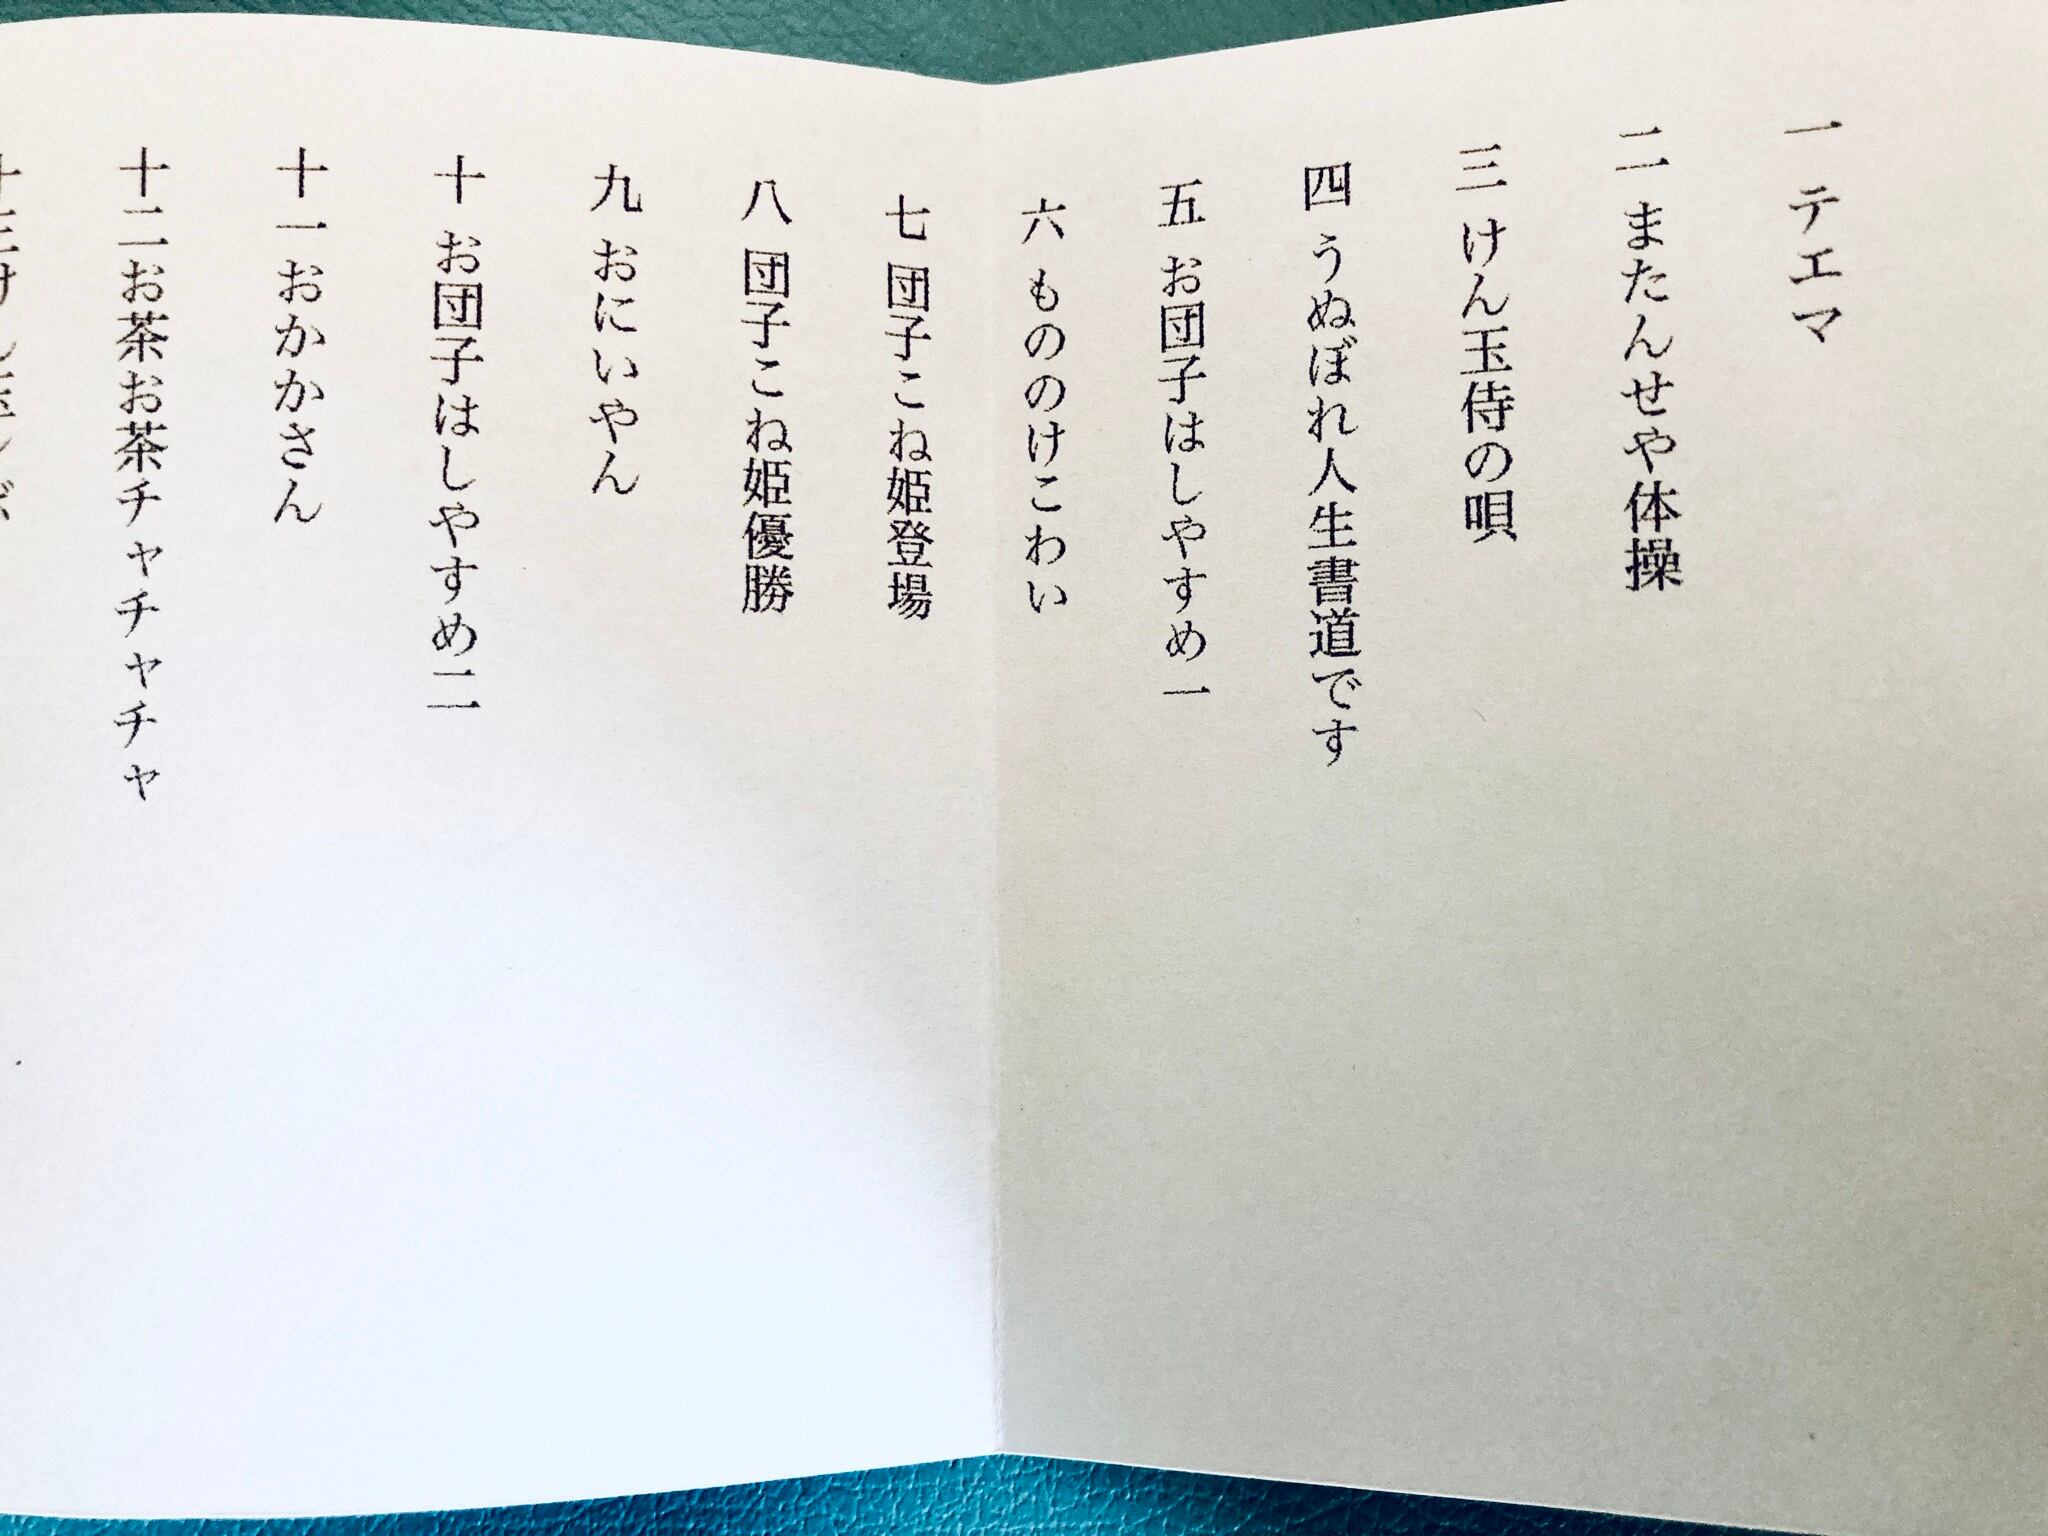 一 テエマ
二 またんせや体操
三 けん玉侍の唄
四 うぬぼれ人生書道です
五 お団子はしやすめ一
六 もののけこわい
七 団子こね姫登場
八 団子こね姫優勝
九 おにいやん
十 お団子はしやすめ二
十一おかかさん
十二お茶お茶チャチャチャ